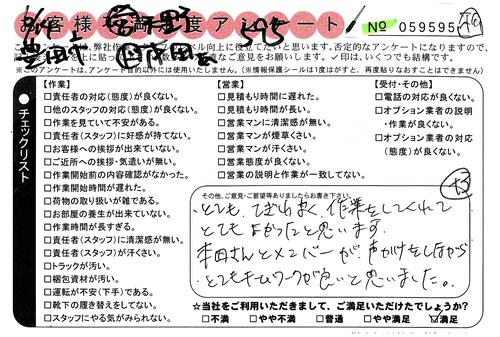 お客様満足度アンケート
№ 059595
アンケートは、弊社作
ベル向上に役立てたいと思います。否定的なアンケートになりますので、
を上に貼っ
直なご意見をお願いします。✓印は、いくつでも結構です。
※このアンケートは、アンケート目的以外には使用いたしません。(※情報保護シールは1度はがすと、再度貼りなおすことはできません。
●チェックリスト
【作業】
□責任者の対応(態度)が良くない。
□他のスタッフの対応(態度)が良くない。
□作業を見ていて不安がある。
□責任者(スタッフ)に好感が持てない。
□お客様への挨拶が出来ていない。
□ご近所への挨拶・気遣いが無い。
□作業開始前の内容確認がなかった。
□作業開始時間が遅れた。
□荷物の取り扱いが雑である。
□お部屋の養生が出来ていない。
□作業時間が長すぎる。
□責任者(スタッフ)に清潔感が無い。
□責任者(スタッフ)が汗くさい。
□トラックが汚い。
□梱包資材が汚い。
□運転が不安(下手)である。
□靴下の履き替えをしてない。
□スタッフにやる気がみられない。
【営業】
□見積もり時間に遅れた。
□見積もり時間が長い。
□営業マンに清潔感が無い。
□営業マンが煙草くさい。
□営業マンが汗くさい。
□営業態度が良くない。
□営業の説明と作業が一致してない。
【受付・その他】
□電話の対応が良くない。
□オプション業者の説明
・作業が良くない。
□オプション業者の対応
(態度)が良くない。
その他、ご意見・ご要望等ありましたらお書き下さい。
とても、てぎわよく、作業をしてくれて
とてもよかったと思います。
本田さんとメンバーが、声がけをしながら
とてもチームワークが良いと思いました。
☆当社をご利用いただきまして、ご満足いただけたでしょうか?
□不満 □やや不満 □普通 □やや満足 ☑満足